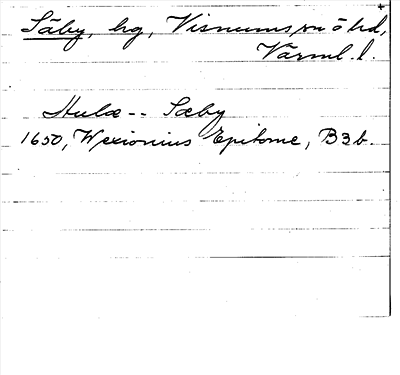 Säby, hg, Visnums sn o hd,
Värml. l.
Hulæ -- Sæby
1650, Wexionius Epitome, B3b.